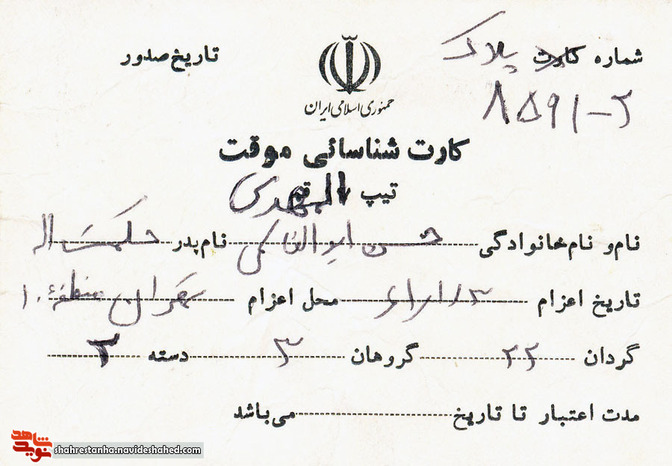 شماره کارت پلاک
تاریخ صدور
۸۵۹۱-۲
جمهوری اسلامی ایران
کارت شناسائی موقت
تیپ المهدی
نام و نام خانوادگی حسن ابوالقاسمی نام پدر حکمت اله
تاریخ اعزام محل اعزام تهران منطقه ۱۰
گردان ۲۲ گروهان ۳ دسته ۲
مدت اعتبار تا تاریخ می باشد
نوید شاهد
shahrestanha.navideshahed.com